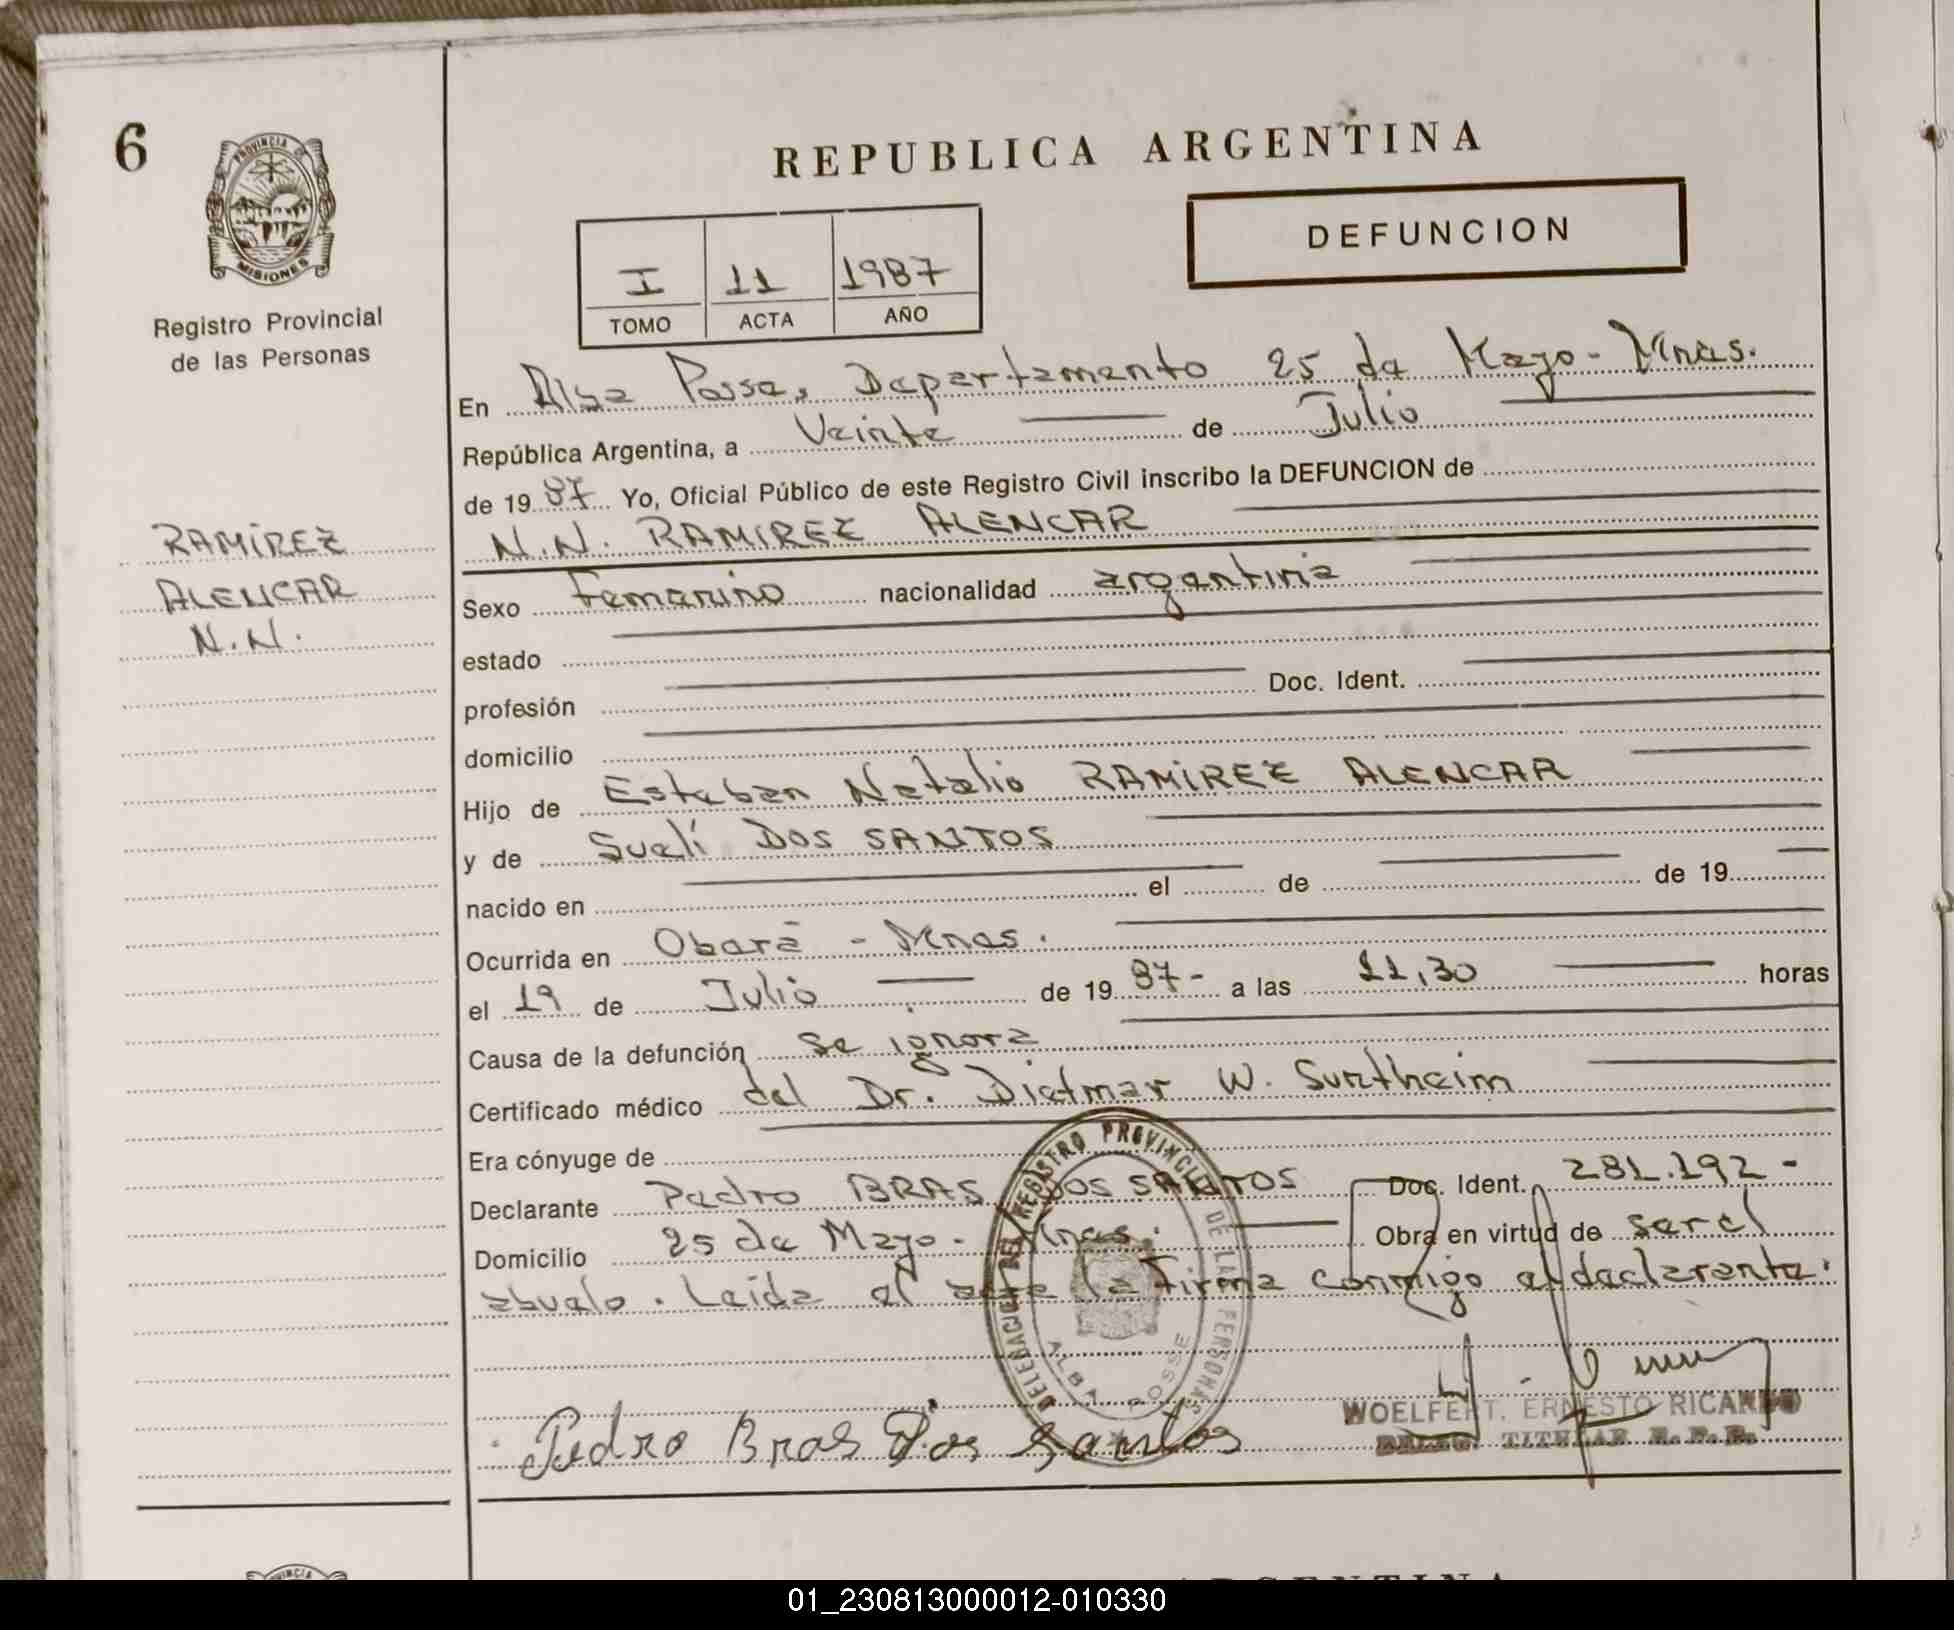 6
PROVINCIA DE
MISIONES
Registro Provincial
de las Personas
RAMIREZ
ALENCAR
N.N.
REPUBLICA ARGENTINA
DEFUNCION
I 11 1987
TOMO ACTA AÑO
En Alba Posse, Departamento 25 de Mayo - Mnes.
República Argentina, a Veinte de Julio
de 1987 Yo, Oficial Público de este Registro Civil inscribo la DEFUNCION de
N.N. RAMIREZ ALENCAR
Sexo femenino nacionalidad argentina
estado
profesión Doc. Ident.
domicilio
Hijo de Esteban Natalio RAMIREZ ALENCAR
y de Suelí DOS SANTOS
nacido en el de de 19
Ocurrida en Oberá - Mnes.
el 19 de Julio de 1987- a las 11,30 horas
Causa de la defunción se ignora
Certificado médico del Dr. Dietmar W. Suntheim
Era cónyuge de
Declarante Pedro BRAS DOS SANTOS Doc. Ident. 281.192-
Domicilio 25 de Mayo - Mnes. Obra en virtud de ser el
abuelo. Leída el acta la firma conmigo el declarante.
DELEGACION DEL REGISTRO PROVINCIAL DE LAS PERSONAS
ALBA POSSE
Pedro Bras Dos Santos
WOELFERT, ERNESTO RICARDO
DELEG. TITULAR R.P.P.
PROVINCIA
ARGENTINA
01_230813000012-010330